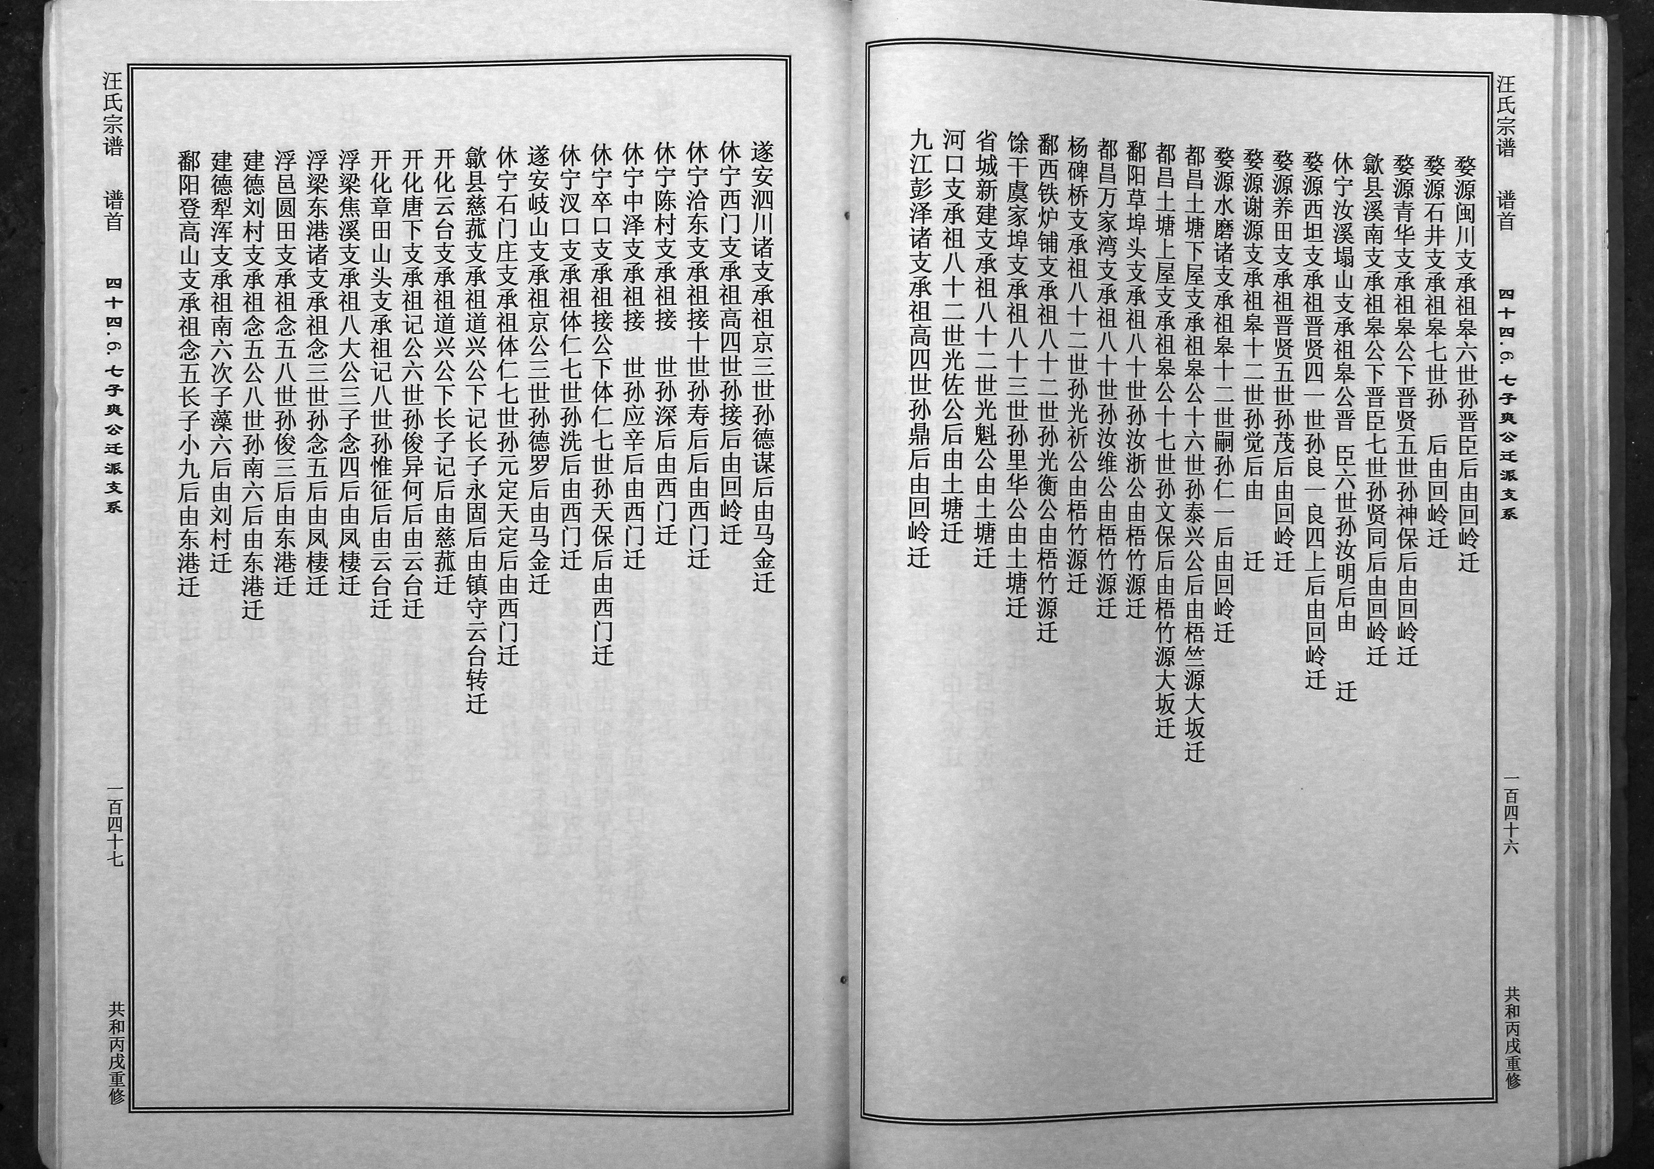 汪氏宗谱 谱首 四十四.6.七子爽公迁派支系 一百四十六 共和丙戌重修
婺源闽川支承祖皋六世孙晋臣后由回岭迁
婺源石井支承祖皋七世孙 后由回岭迁
婺源青华支承祖皋公下晋贤五世孙神保后由回岭迁
歙县溪南支承祖皋公下晋臣七世孙贤同后由回岭迁
休宁汝溪塌山支承祖皋公晋 臣六世孙汝明后由 迁
婺源西坦支承祖晋贤四一世孙良一良四上后由回岭迁
婺源养田支承祖晋贤五世孙茂后由回岭迁
婺源谢源支承祖皋十二世孙觉后由 迁
婺源水磨诸支承祖皋十二世嗣孙仁一后由回岭迁
都昌土塘下屋支承祖皋公十六世孙泰兴公后由梧竺源大坂迁
都昌土塘上屋支承祖皋公十七世孙文保后由梧竹源大坂迁
鄱阳草埠头支承祖八十世孙汝浙公由梧竹源迁
都昌万家湾支承祖八十世孙汝维公由梧竹源迁
杨碑桥支承祖八十二世孙光祈公由梧竹源迁
鄱西铁炉铺支承祖八十二世孙光衡公由梧竹源迁
馀干虞家埠支承祖八十三世孙里华公由土塘迁
省城新建支承祖八十二世光魁公由土塘迁
河口支承祖八十二世光佐公后由土塘迁
九江彭泽诸支承祖高四世孙鼎后由回岭迁
遂安泗川诸支承祖京三世孙德谋后由马金迁
休宁西门支承祖高四世孙接后由回岭迁
休宁洽东支承祖接十世孙寿后后由西门迁
休宁陈村支承祖接 世孙深后由西门迁
休宁中泽支承祖接 世孙应辛后由西门迁
休宁卒口支承祖接公下体仁七世孙天保后由西门迁
休宁汊口支承祖体仁七世孙洗后由西门迁
遂安岐山支承祖京公三世孙德罗后由马金迁
休宁石门庄支承祖体仁七世孙元定天定后由西门迁
歙县慈菰支承祖道兴公下记长子永固后由镇守云台转迁
开化云台支承祖道兴公下长子记后由慈菰迁
开化唐下支承祖记公六世孙俊异何后由云台迁
开化章田山头支承祖记八世孙惟征后由云台迁
浮梁焦溪支承祖八大公三子念四后由凤棲迁
浮梁东港诸支承祖念三世孙念五后由凤棲迁
浮邑圆田支承祖念五八世孙俊三后由东港迁
建德刘村支承祖念五公八世孙南六后由东港迁
建德犁浑支承祖南六次子藻六后由刘村迁
鄱阳登高山支承祖念五长子小九后由东港迁
汪氏宗谱 谱首 四十四.6.七子爽公迁派支系 一百四十七 共和丙戌重修